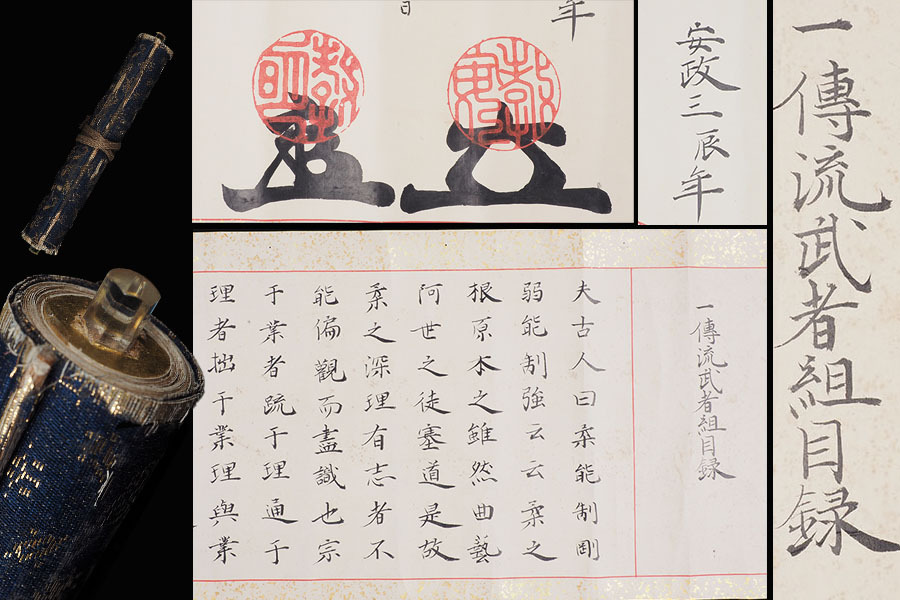 年
日
安政三辰年
一傳流武者組目録
一傳流武者組目録
夫古人曰柔能制剛
弱能制強云云柔之
根原本之雖然曲藝
阿世之徒塞道是故
柔之深理有志者不
能偏觀而盡識也宗
于業者疏于理通于
理者拙于業理與業